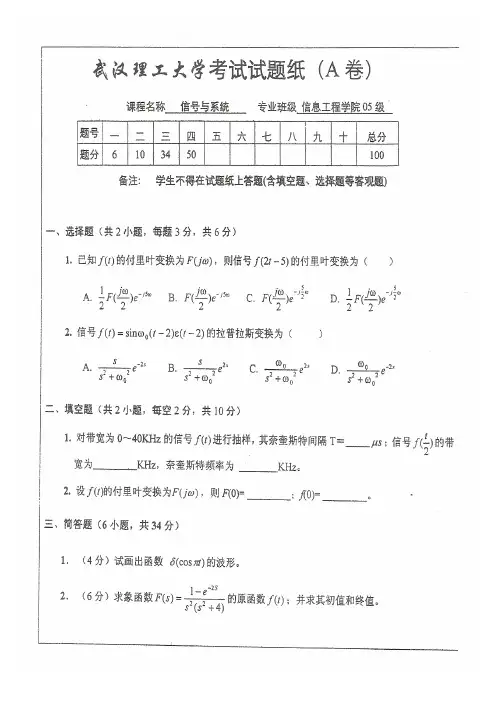 武汉理工大学考试试题纸（A 卷）
课程名称 信号与系统 专业班级 信息工程学院 05 级
题号 一 二 三 四 五 六 七 八 九 十 总分
题分 6 10 34 50 100
备注: 学生不得在试题纸上答题(含填空题、选择题等客观题)
一、选择题（共 2 小题，每题 3 分，共 6 分）
1. 已知 f(t) 的付里叶变换为 F(jω)，则信号 f(2t−5) 的付里叶变换为（ ）
A. \frac{1}{2}F(\frac{jω}{2})e^{−j5ω} B. F(\frac{jω}{2})e^{−j5ω} C. F(\frac{jω}{2})e^{−j\frac{5}{2}ω} D. \frac{1}{2}F(\frac{jω}{2})e^{−j\frac{5}{2}ω}
2. 信号 f(t) = sinω_0(t−2)ε(t−2) 的拉普拉斯变换为（ ）
A. \frac{s}{s^2+ω_0^2}e^{−2s} B. \frac{s}{s^2+ω_0^2}e^{2s} C. \frac{ω_0}{s^2+ω_0^2}e^{2s} D. \frac{ω_0}{s^2+ω_0^2}e^{−2s}
二、填空题（共 2 小题，每空 2 分，共 10 分）
1. 对带宽为 0～40KHz 的信号 f(t) 进行抽样，其奈奎斯特间隔 T＝____ μs；信号 f(\frac{t}{2}) 的带
宽为________KHz，奈奎斯特频率为 _______KHz。
2. 设 f(t)的付里叶变换为F(jω)，则 F(0)= ________；f(0)= ________。
三、简答题（6 小题，共 34 分）
1. （4 分）试画出函数 δ(cos πt) 的波形。
2. （6 分）求象函数 F(s) = \frac{1−e^{−2S}}{s^2(s^2+4)} 的原函数 f(t)；并求其初值和终值。